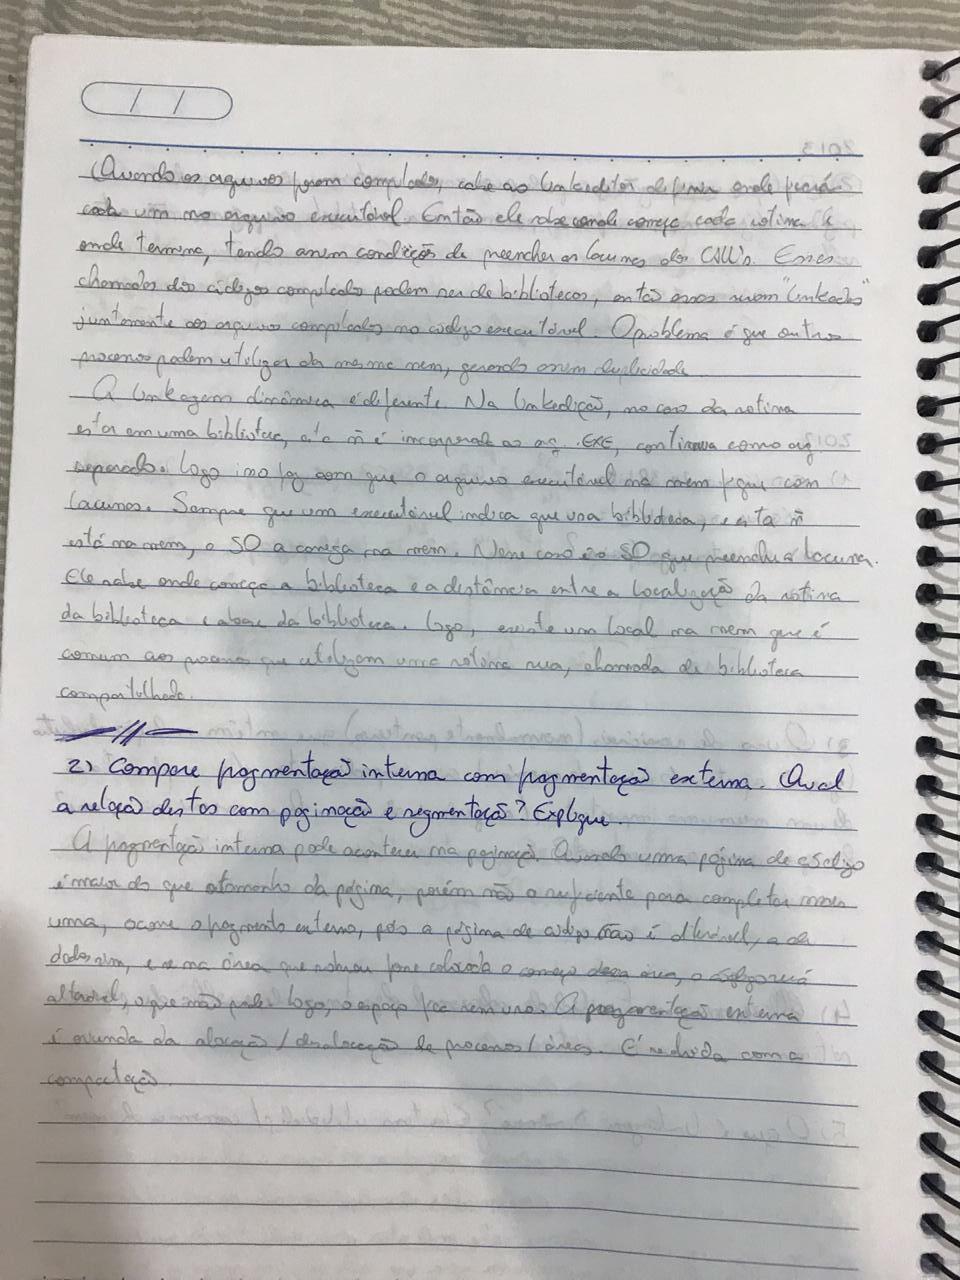 / /
Quando os arquivos foram compilados, cabe ao linkeditor definir onde ficará
cada um no arquivo executável. Então ele sabe onde começa cada rotina e
onde termina, tendo assim condição de preencher as lacunas dos CALL's. Esses
chamados dos códigos compilados podem ser de bibliotecas, então essas seriam "linkadas"
juntamente aos arquivos compilados no código executável. O problema é que outros
processos podem utilizar da mesma mem, gerando assim duplicidade.
A linkagem dinâmica é diferente. Na linkedição, no caso da rotina
estar em uma biblioteca, esta ñ é incorporada ao arq .EXE, continua como arq
separado. Logo isso faz com que o arquivo executável na mem fique com
lacunas. Sempre que um executável indica que usa biblioteca, e esta ñ
está na mem, o SO a carrega na mem. Nesse caso é o SO que preenche a lacuna.
Ele sabe onde começa a biblioteca e a distância entre a localização da rotina
da biblioteca e a base da biblioteca. Logo, existe um local na mem que é
comum aos processos que utilizam uma rotina sua, chamada de biblioteca
compartilhada.
//
2) Compare fragmentação interna com fragmentação externa. Qual
a relação destas com paginação e segmentação? Explique
A fragmentação interna pode acontecer na paginação. Quando uma página de código
é maior do que o tamanho da página, porém não o suficiente para completar mais
uma, ocorre o fragmento interno, pois a página de código não é alterável, a de
dados sim, e se na área que sobrou fosse colocado o começo dessa área, o código será
alterável, o que não pode. Logo, o espaço fica sem uso. A fragmentação externa
é oriunda da alocação/desalocação de processos/áreas. É reduzida com a
compactação.